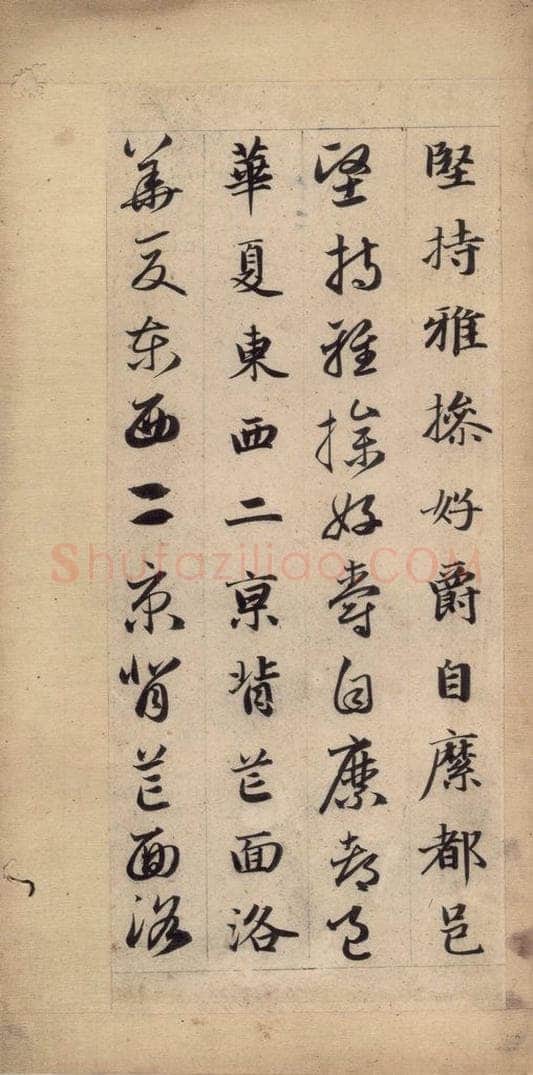 堅持雅操好爵自縻都邑
堅持雅操好爵自縻都邑
華夏東西二京背芒面洛
華夏東西二京背芒面洛
Shufaziliao.COM